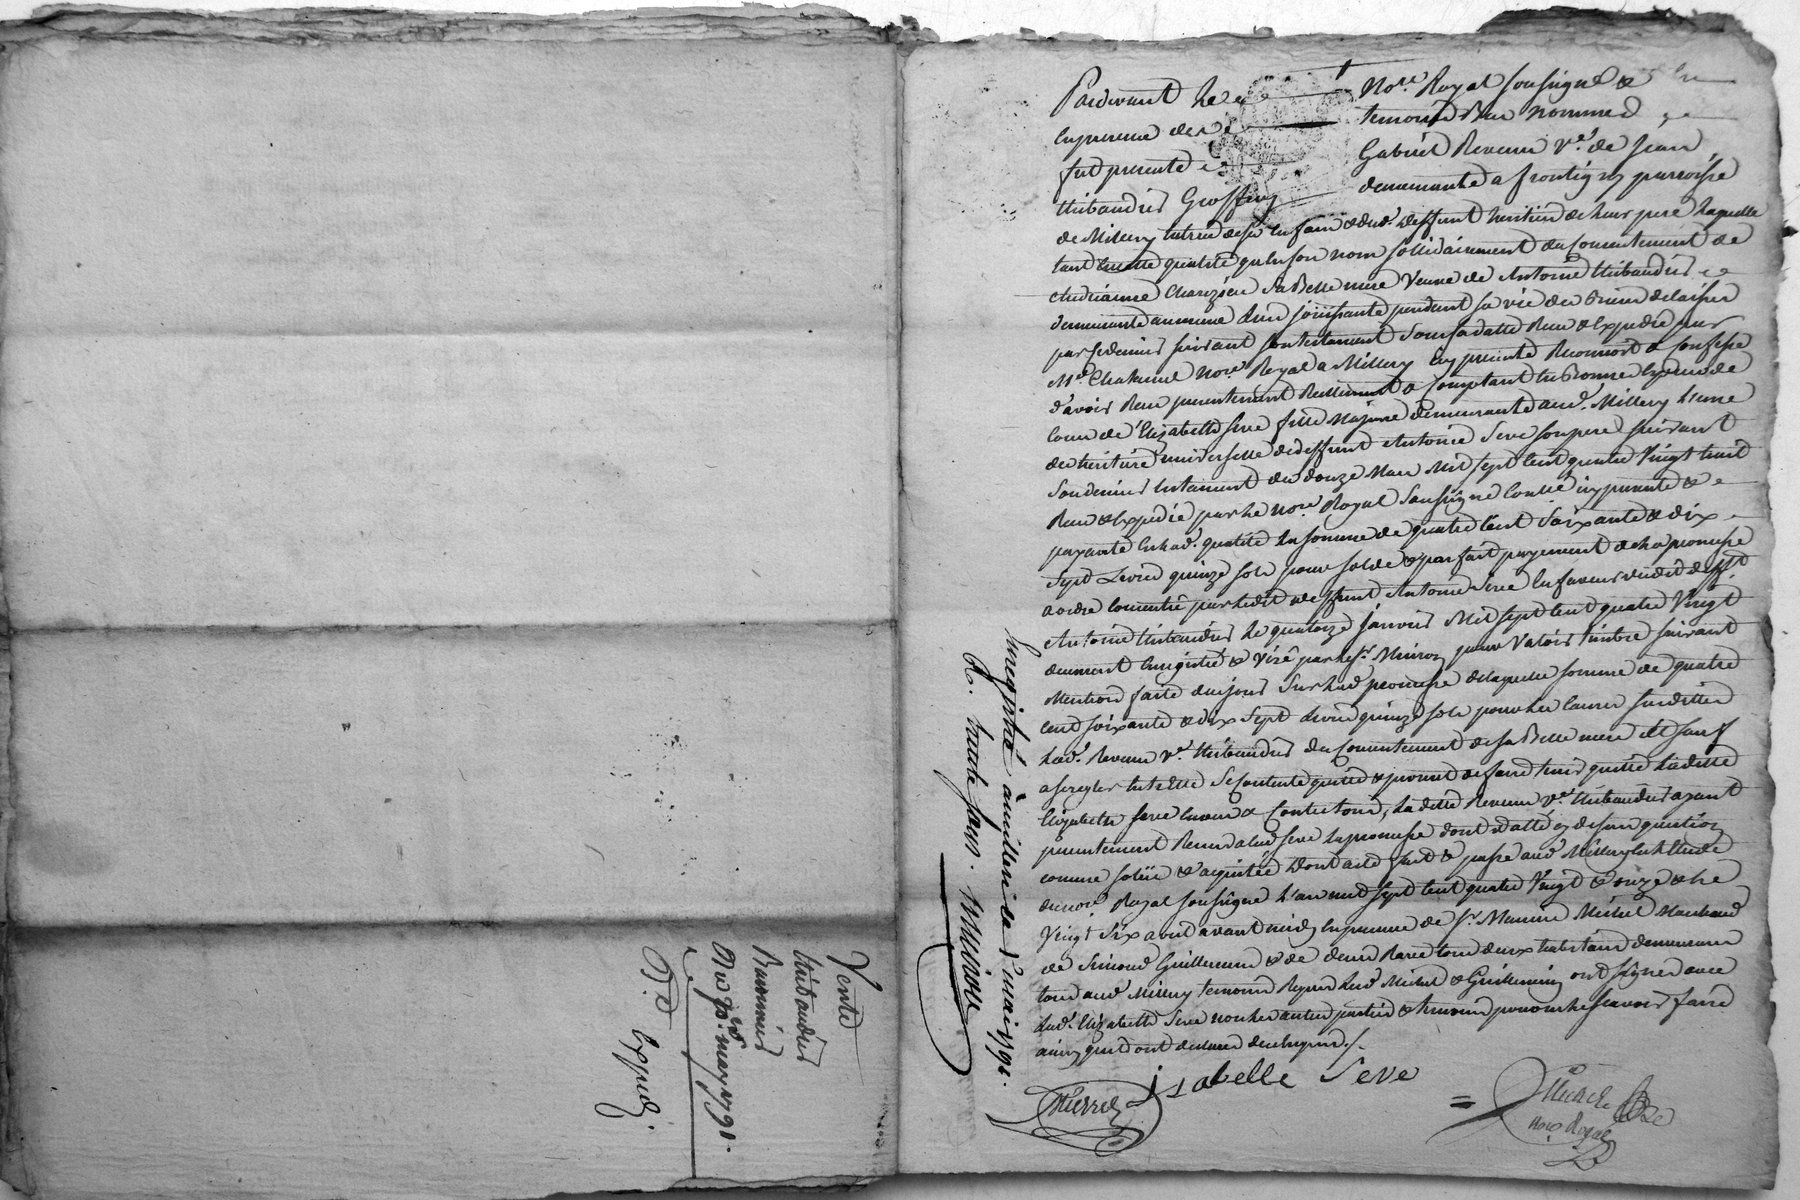 Pardevant Le Nore. Royal soussigné &
en presence des temoins Bas nommes
fut presente Gabriel Revenu Ve. de Jean
thibaudier Geoffray demeurante a frontigny parroisse
de Millery tutrice de ses enfans & dud. deffunt heritiers de leur pere Laquelle
tant en cette qualité qu'en son nom sollidairement du Consentement de
Charezieu sa Belle mere Veuve de Antoine thibaudier
demeurante au meme Lieu jouissante pendant sa vie des Biens delaissés
par ce dernier suivant son testament sous sa datte Recu & Expedié par
Me. Nore. Royal a Millery Icy presente Reconnoit & Confesse
d'avoir Recu presentement Reellement & Comptant en Bonnes Especes de
Cours de Elizabeth Seve fille Majeure demeurante aud. Millery L'une
des heritieres universelle de deffunt Antoine Seve son pere suivant
son dernier testament du douze Mars Mil sept Cent quatre Vingt huit
Recu & Expedié par Le Nore. Royal Soussigné Controlé icy presente &
payante En lad. qualité La somme de quatre Cent Soixante & dix
Sept Livres quinze sols pour solde & parfait payement de La promesse
a ordre Consentie par Ledit deffunt Antoine Seve En faveur dudit defft.
Antoine thibaudier Le quatorze Janvier Mil sept Cent quatre Vingt
deument Enregistré & Visé par Le Sr. Muiron pour Valoir timbre suivant
Mention faite du jour Sur Lad. promesse de laquelle somme de quatre
Cent soixante & dix Sept Livres quinze sols pour les Causes susdittes
Lad. Revenu Ve. thibaudier du Consentement de sa Belle mere Et sauf
a se regler Entr'Elle Se Contente quitte & promet de faire tenir quitte Laditte
Elizabeth Seve Envers & Contre tous, La ditte Revenu Ve. thibaudier ayant
presentement Remis a lad. Seve La promesse dont datté cy dessus question
comme solüe & aquittée Dont acte fait & passé aud. Millery Etude
du nore. Royal soussigné L'an mil sept Cent quatre Vingt & onze & Le
Vingt Six avril avant midy En presence de Sr. Maurice Michel Marchand
de Simond Guillermin & de tous deux habitans demeurans
tous aud. Millery temoins Requis Led. Michel & Guillermin ont signes avec
Lad. Elizabeth Seve non Les autres parties & temoins pour ne Le scavoir faire
ainsy quils ont declarés de ce Enquis ./.
isabelle Seve
Michel
Nore Royal
Enregistré a millery le 1er mai 1791.
R. trente sous. Muiron
Vente
thibaudier
Du 1er. may 1791.
Expedié.